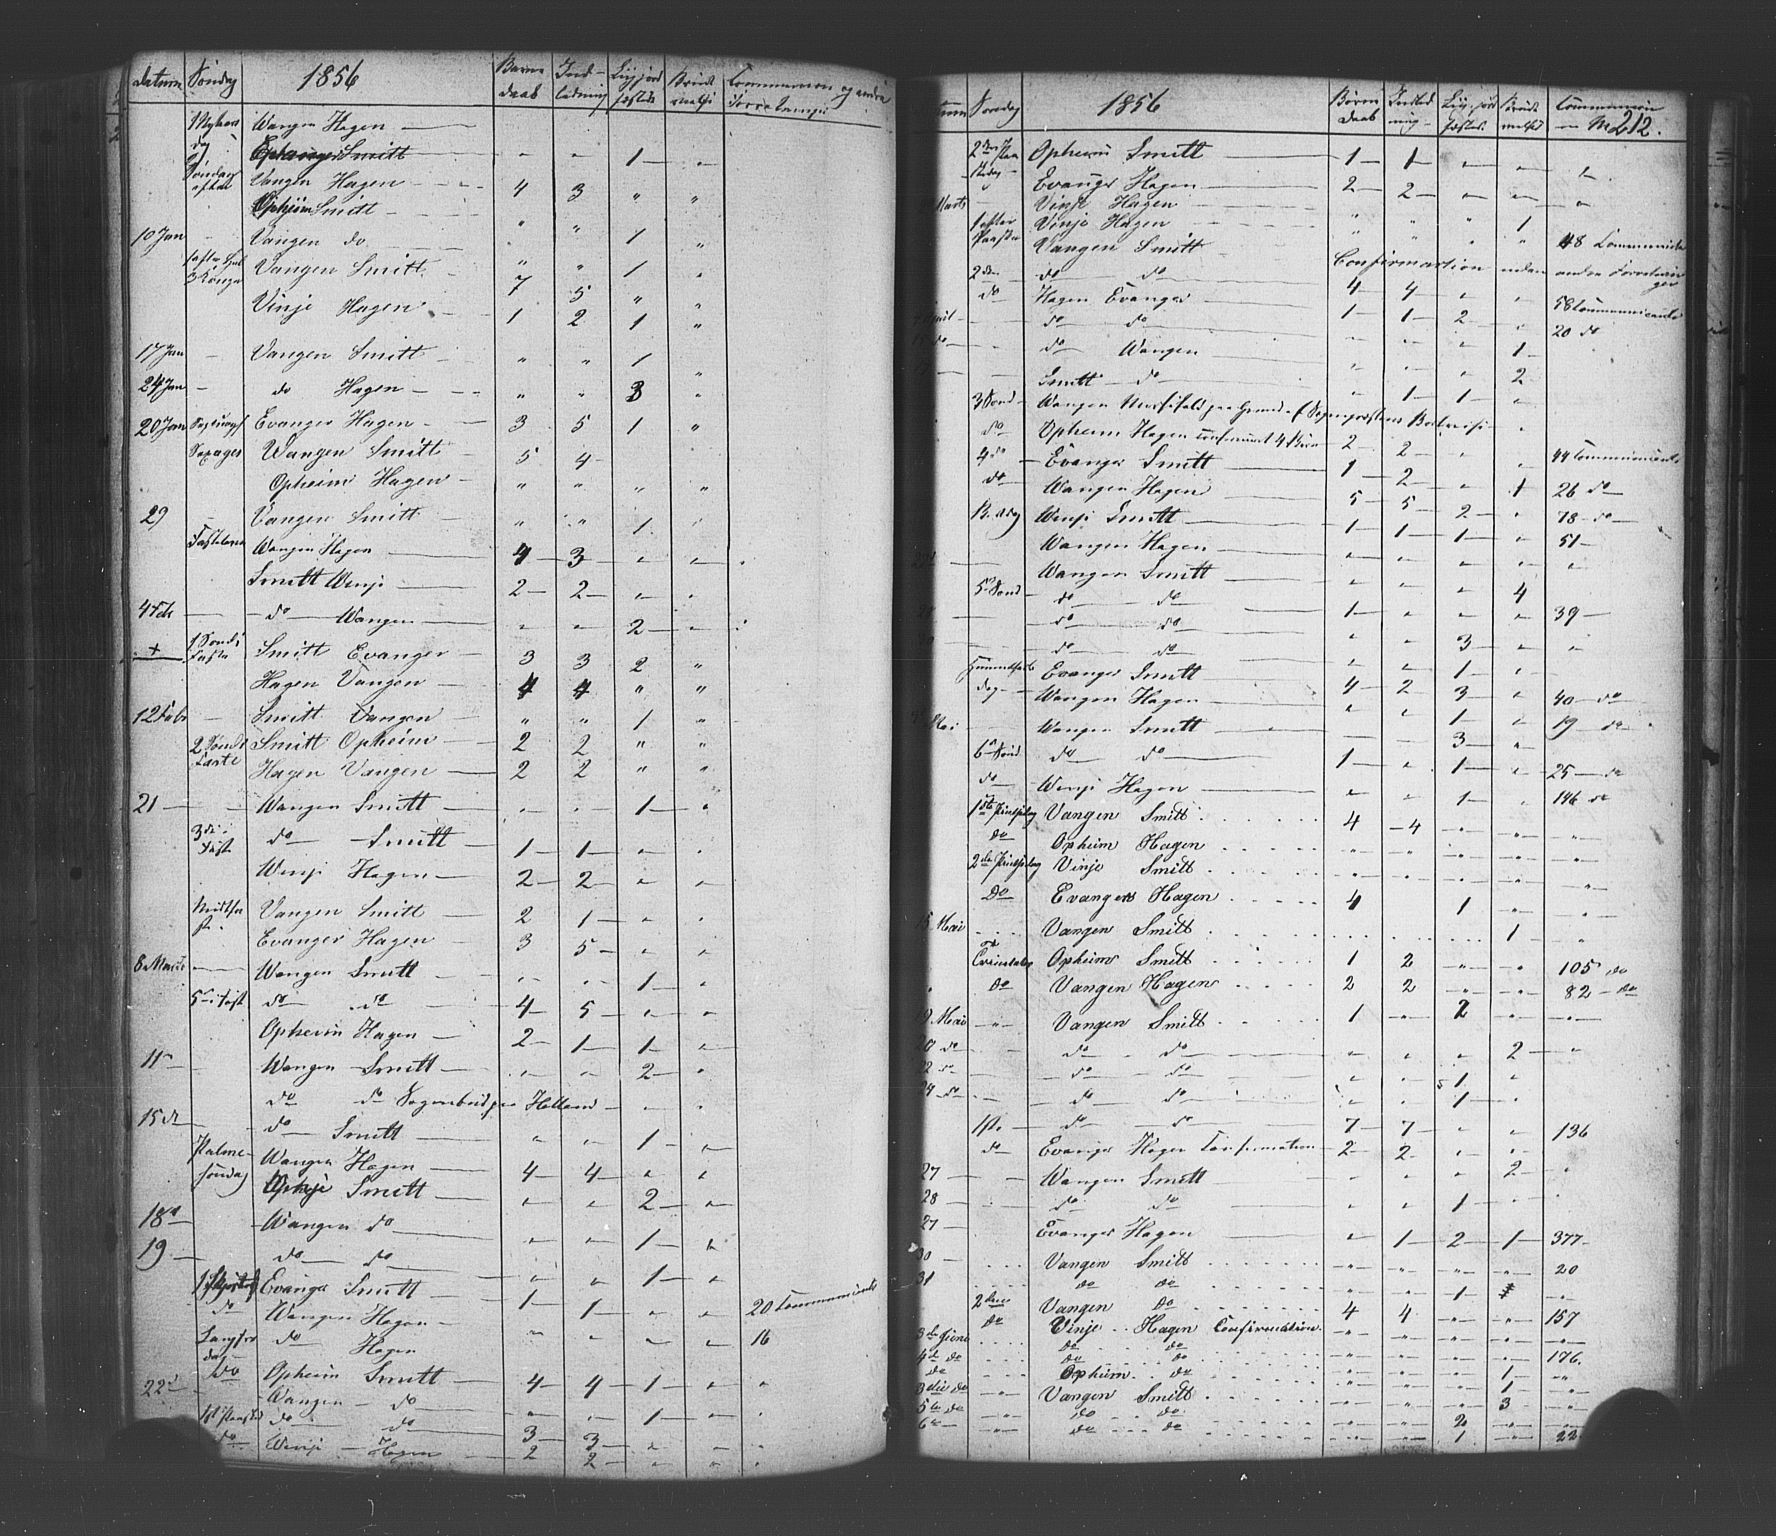 Datum Søndag 1856 Børne daab Ind- ledning Ligjord fæstelse Brude vielse Communion og andre Forretninger
Nykaars dag Wangen Hagen —
Smitt " " 1 "
Søndag efter Vangen Hagen 4 3 " "
Opheim Smitt " " 1 "
10 Jan Vangen do " " 1 "
3 Konge Vangen Smitt 7 5 " "
Vinje Hagen 1 2 1 "
17 Jan Vangen Smitt " " 1 "
24 Jan do Hagen " " 3 "
20 Jan Evanger Hagen 3 5 1 "
Wangen Smitt 5 4
Opheim Hagen " " " "
29 Vangen Smitt " " 1 "
Fastelavn Wangen Hagen 4 3 " "
Smitt Winje 2 2 " "
4 Feb do Wangen " " 2 "
+ 1 Sond i Faste Smitt Evanger 3 3 2 "
Hagen Vangen 4 4 " "
12 Febr Smitt Vangen " " 1 "
2 Sond i Faste Smitt Opheim 2 2 " "
Hagen Vangen 2 2 " "
21 Wangen Smitt " " 1 "
3 di Fast do Smitt 1 1 " "
Winje Hagen 2 2 " "
Midtfa st. Vangen Smitt 2 1 " "
Evanger Hagen 3 5 " "
8 Marts Wangen Smitt " " 1 "
5 i Fast do do 4 5 " "
Opheim Hagen 2 1 1 "
11 Wangen Smitt " " 2 "
do do Sognebud paa Helland " "
15 d do Smitt " " 1 "
Palme- søndag Wangen Hagen 4 4 " "
Smitt " " 2 "
18 d Wangen do " " 1 "
19 do do " " 1 "
Evanger Smitt 1 1 " " 20 Communicants
do Wangen Hagen " " " " 16
Langfre dag do Hagen
do Opheim Smitt 4 4 1 " "
22 d Wangen do " " 1 " "
1st Paasked do do 3 3 " " "
do Winje Hagen 2 2 " " "

Datum Søndag 1856 Børne daab Indled ning Ligjord fæstelse Brude vielse Communion 212.
2den Paa skedag Opheim Smitt 1 1 " " "
Evanger Hagen 2 2 " " "
Marts Vinje Hagen
1 efter Paaske Vinje Hagen " " " 1
Vangen Smitt " " " " 48 Communicants
2 den do do Confirmartion uden andre Forretnin ger
do Hagen Evanger 4 4 " " 58 Communicants
April do do 1 1 2 " 20 do
15 do do Wangen " " " 1
Smitt do " " " 2
3 Sond Wangen " 1 1 "
do Opheim Hagen confirmeret 4 Børn 2 2 " " 44 Communicants
4 do Evanger Smitt 1 2 " 1 26 do
do Wangen Hagen 5 5 2 " 78 do
B. dag Winje Smitt 1 1 1 " 51
Wangen Hagen " " " " "
Wangen Smitt " " " 4
5 Sond do do 1 " " " 39
do do " " 3 " "
do do " " 1 "
Himmelfarts dag Evanger Smitt 4 2 3 " 40 do
Wangen Hagen " " 1 " 19 do
Mai Wangen Smitt " " 3 "
6 Sond do do 1 " 1 " 25 do
do Winje Hagen " " 1 " 146 do
1ste Pintsedag Vangen Smitt 4 4 " " "
do Opheim Hagen " " " " "
2den Pintsedag Vinje Smitt " " " " "
Do Evangers Hagen 4 1 " "
15 Mai Vangen Smitt 1 "
Trinitatis Opheim Smitt 1 2 " " 105 do
do Vangen Hagen 2 2 " " 82 do
Mai " Vangen Smitt 1 " 2 " "
do do do " " " 2 "
do do do " " 1 "
24 do do do " " 1 "
1st. do do 7 7 " " 136
do Evanger Hagen Confirmation 2 2 " "
27 Wangen Smitt " " " 2 "
28 do do " " 1 "
27 Evanger Hagen " 1 2 1 377
30 Vangen Smitt " " " " 20
31 do do " " 1 "
2 den Vangen Do 4 4 " " 157
do Vinje Hagen Confirmation " " " " "
3 die Juni do do " " " " 176.
4 d do do do " " " 1 "
do Opheim do " " " 1 "
3 die do Vangen Smitt " " " 3 "
5 te do do do " " 2 " "
6 do do " " 1 " 22